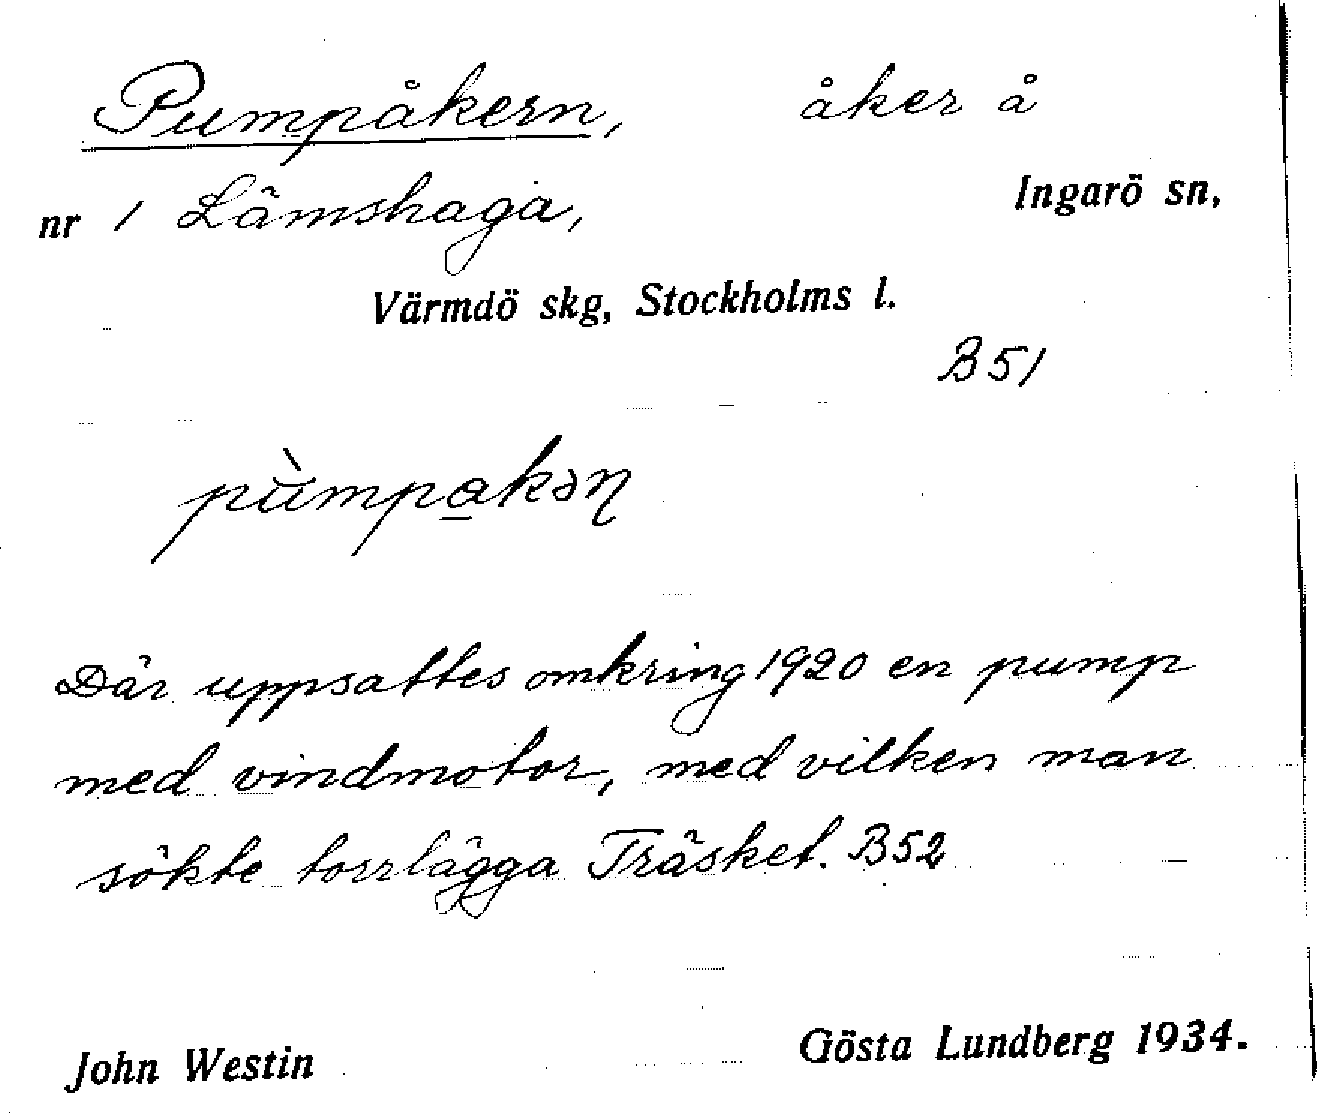 Pumpåkern, åker å
nr 1 Lämshaga, Ingarö sn,
Värmdö skg, Stockholms l.
B51
Där uppsattes omkring 1920 en pump
med vindmotor, med vilken man
sökte torrlägga Träsket. B52
John Westin Gösta Lundberg 1934.